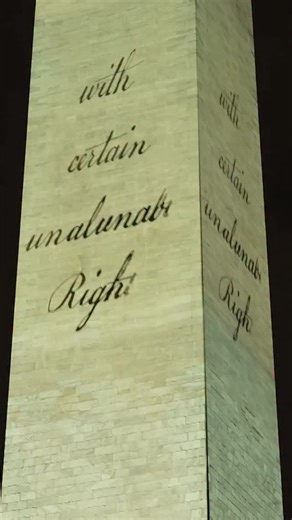 with
certain
unalunabl
Right
with
certain
unalunabl
Righ